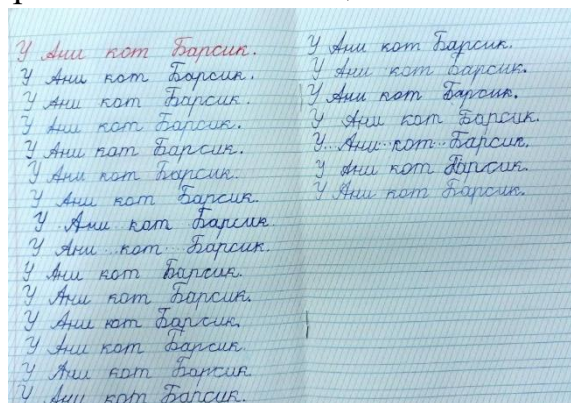 У Ани кот Барсик.
У Ани кот Барсик.
У Ани кот Барсик.
У Ани кот Барсик.
У Ани кот Барсик.
У Ани кот Барсик.
У Ани кот Барсик.
У Ани кот Барсик.
У Ани кот Барсик.
У Ани кот Барсик.
У Ани кот Барсик.
У Ани кот Барсик.
У Ани кот Барсик.
У Ани кот Барсик
У Ани кот Барсик.
У Ани кот Барсик.
У Ани кот Барсик.
У Ани кот Барсик.
У Ани кот Барсик.
У Ани кот Барсик.
У Ани кот Барсик.
У Ани кот Барсик.